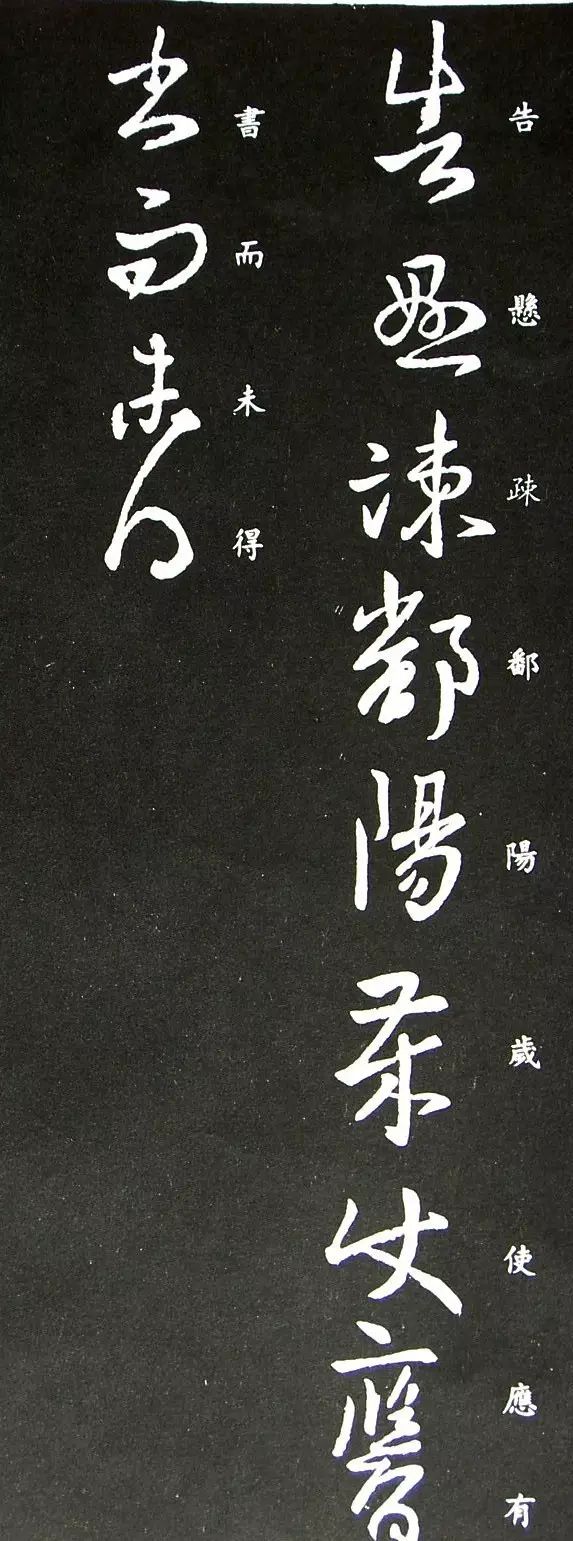 告懸疎鄱陽歲使應有
書而未得